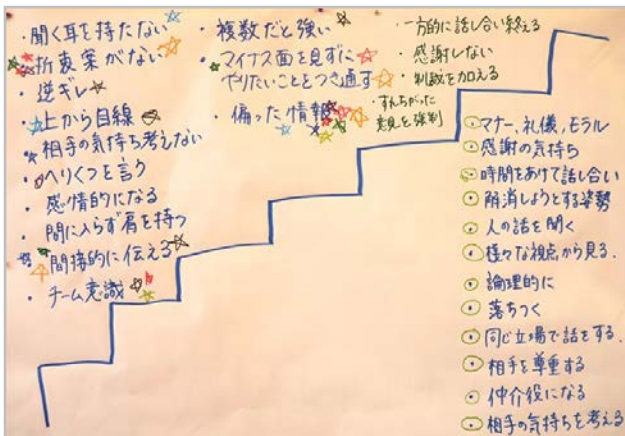 ・聞く耳を持たない
・折衷案がない
・逆ギレ
・上から目線
・相手の気持ち考えない
・へりくつを言う
・感情的になる
・間に入らず肩を持つ
・間接的に伝える
・チーム意識
・複数だと強い
・マイナス面を見ずに
やりたいことをつき通す
・偏った情報
・一方的に話し合い終える
・感謝しない
・制裁を加える
・すんちがった
意見を強制
マナー、礼儀、モラル
感謝の気持ち
時間をあけて話し合い
解消しようとする姿勢
人の話を聞く
様々な視点から見る.
論理的に
落ちつく
同じ立場で話をする.
相手を尊重する
仲介役になる
相手の気持ちを考える